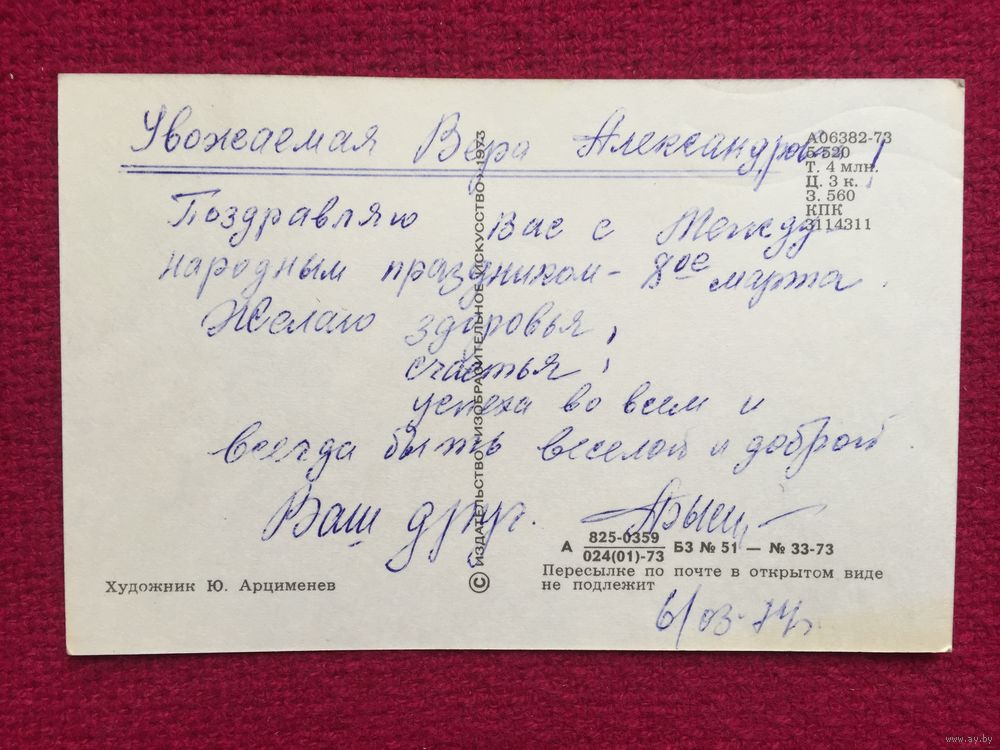 Уважаемая Вера Александровна!
А06382-73
5-520
Т. 4 млн.
Ц. 3 к.
З. 560
КПК
3114311
Поздравляю Вас с Между-
народным праздником - 8ое марта.
Желаю здоровья,
счастья,
успеха во всем и
всегда быть веселой и доброй.
Ваш друг.
© ИЗДАТЕЛЬСТВО «ИЗОБРАЗИТЕЛЬНОЕ ИСКУССТВО» 1973
А 825-0359 / 024(01)-73 БЗ № 51 — № 33-73
Пересылке по почте в открытом виде
не подлежит
Художник Ю. Арцименев
6/03-74г.
www.ay.by